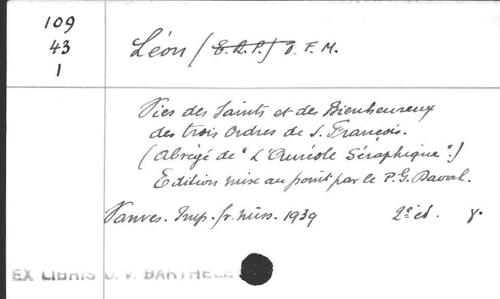 109
43
1
Léon (T.R.P.) O.F.M.
Vies des Saints et des Bienheureux
des trois Ordres de S. François.
(Abrégé de "L'Auréole Séraphique".)
Edition mise au point par le P.G. Daval.
Vanves. Imp. fr. miss. 1939 2e éd. 8.
EX LIBRIS D. V. BARTHELE